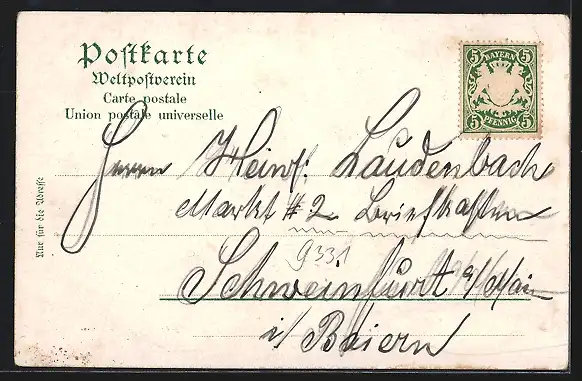 Postkarte
Weltpostverein
Carte postale
Union postale universelle
5 BAYERN 5
5 PFENNIG 5
Nur für die Adresse
Herrn Heinr: Laudenbach
Markt # 2 Briefkasten
9331
Schweinfurt a/Main
i/ Baiern